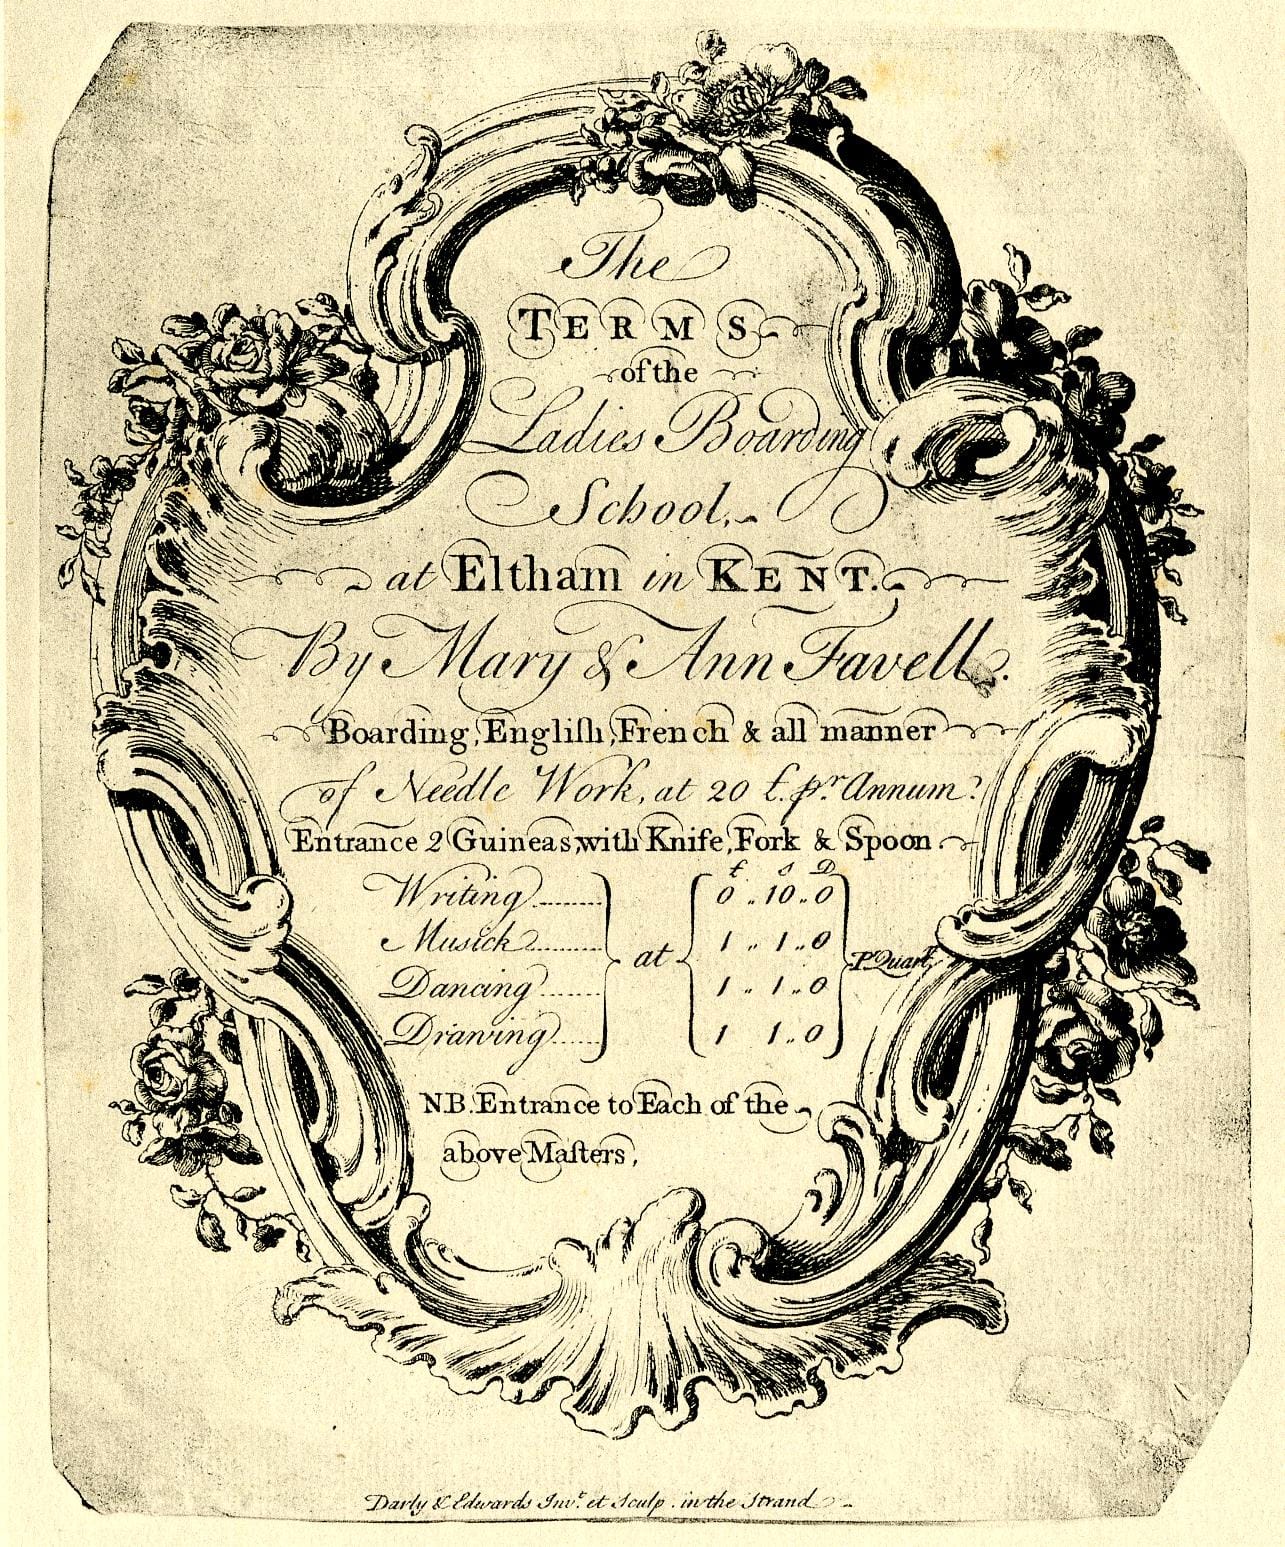 The
TERMS
of the
Ladies Boarding
School,
at Eltham in KENT.
By Mary & Ann Favell.
Boarding, Engliſh, French & all manner
of Needle Work, at 20 £. pr. Annum.
Entrance 2 Guineas, with Knife, Fork & Spoon
£ s D
Writing .......... 0 .. 10 .. 0
Musick .......... 1 .. 1 .. 0
Dancing ....... at 1 .. 1 .. 0 Pr. Quart.
Drawing ...... 1 1 .. 0
NB. Entrance to Each of the
above Maſters,
Darly & Edwards Invt. et Sculp. in the Strand